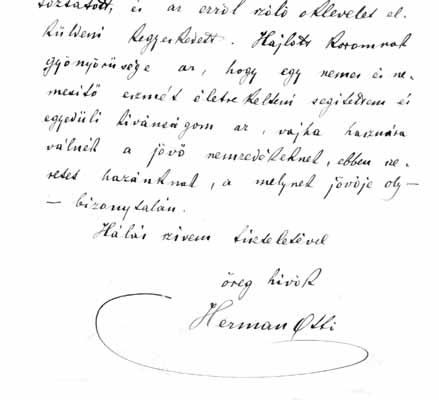 és az erről szóló oklevelet el-
küldeni kegyeskedett. Hajlott koromnak
gyönyörűsége az, hogy egy nemes és ne-
mesitő eszmét életre kelteni segitettem és
egyedüli kivánságom az, vajha hasznára
válnék a jövő nemzedékeknek, ebben ne-
hazánknak, a melynek jövője oly —
— bizonytalan.
Hálás szivem tiszteletével
öreg hivök
Herman Ottó